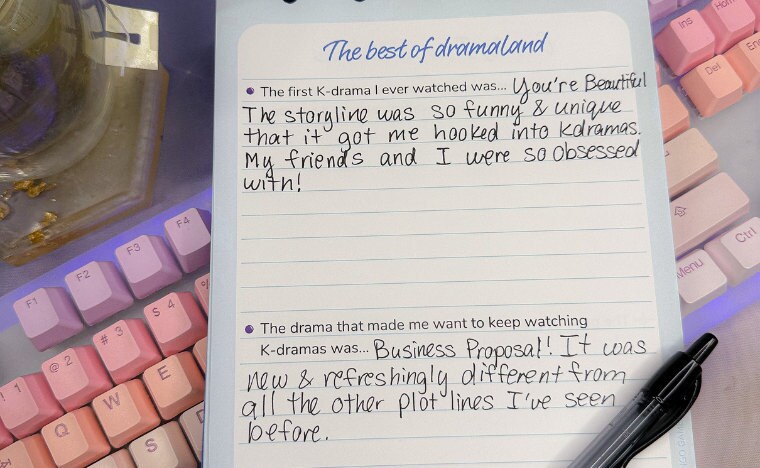 The best of dramaland
The first K-drama I ever watched was... You're Beautiful
The storyline was so funny & unique
that it got me hooked into Kdramas.
My friends and I were so obsessed
with!
The drama that made me want to keep watching
K-dramas was... Business Proposal! It was
new & refreshingly different from
all the other plot lines I've seen
before.
F1
F2
F3
F4
! 1
@ 2
# 3
$ 4
Q
W
E
S
Ins
Del
Menu
Ctrl